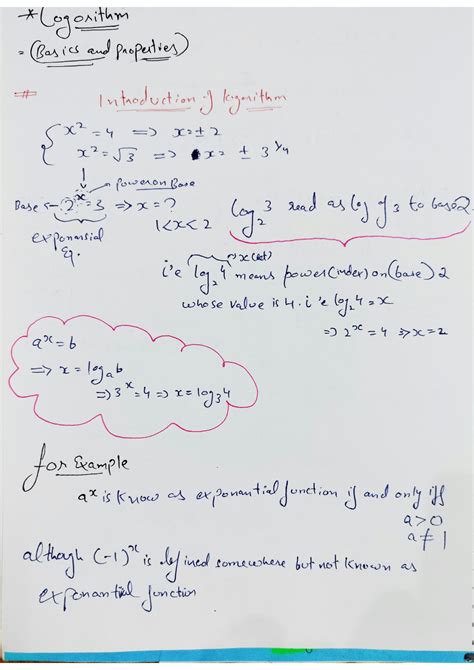 * Logorithm
= (Basics and properties)
# Introduction of logorithm
x² = 4 => x = ± 2
x² = √3 => x = ± 3^(1/4)
power on Base
Base ← 2^x = 3 => x = ?
1 < x < 2
log₂3 read as log of 3 to base 2
exponansial
Eq.
x (let)
i'e log₂4 means power (index) on (base) 2
whose value is 4. i'e log₂4 = x
=> 2^x = 4 => x = 2
a^x = b
=> x = logₐb
=> 3^x = 4 => x = log₃4
for Example
a^x is know as exponantial function if and only iff
a > 0
a ≠ 1
although (-1)^x is defined somewhere but not known as
exponantial function